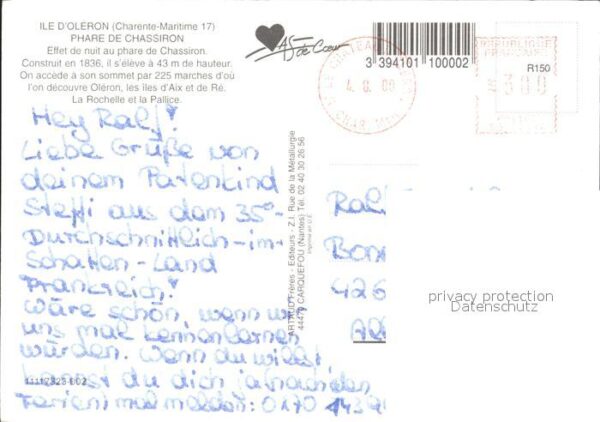 ILE D'OLERON (Charente-Maritime 17)
PHARE DE CHASSIRON
Effet de nuit au phare de Chassiron.
Construit en 1836, il s'élève à 43 m de hauteur.
On accède à son sommet par 225 marches d'où
l'on découvre Oléron, les îles d'Aix et de Ré.
La Rochelle et la Pallice.
As de Cœur
3 394101 100002
LE CHATEAU
4. 8. 00
REPUBLIQUE
FRANCAISE
300
R150
Hey Ralf!
Liebe Grüße von
deinem Patenkind
Steffi aus dem 35°-
Durchschnittlich-im-
Schatten-Land
Frankreich!
Wäre schön, wenn wir
uns mal kennenlernen
würden. Wenn du willst
kannst du dich ja nach den
Ferien mal melden: 0170 143
11117323-002
ARTAUD Frères - Editeurs - Z.I. Rue de la Métallurgie
44470 CARQUEFOU (Nantes) Tél. 02 40 30 26 56
Imprimé en U.E.
Ral
Bon
426
privacy protection
Datenschutz